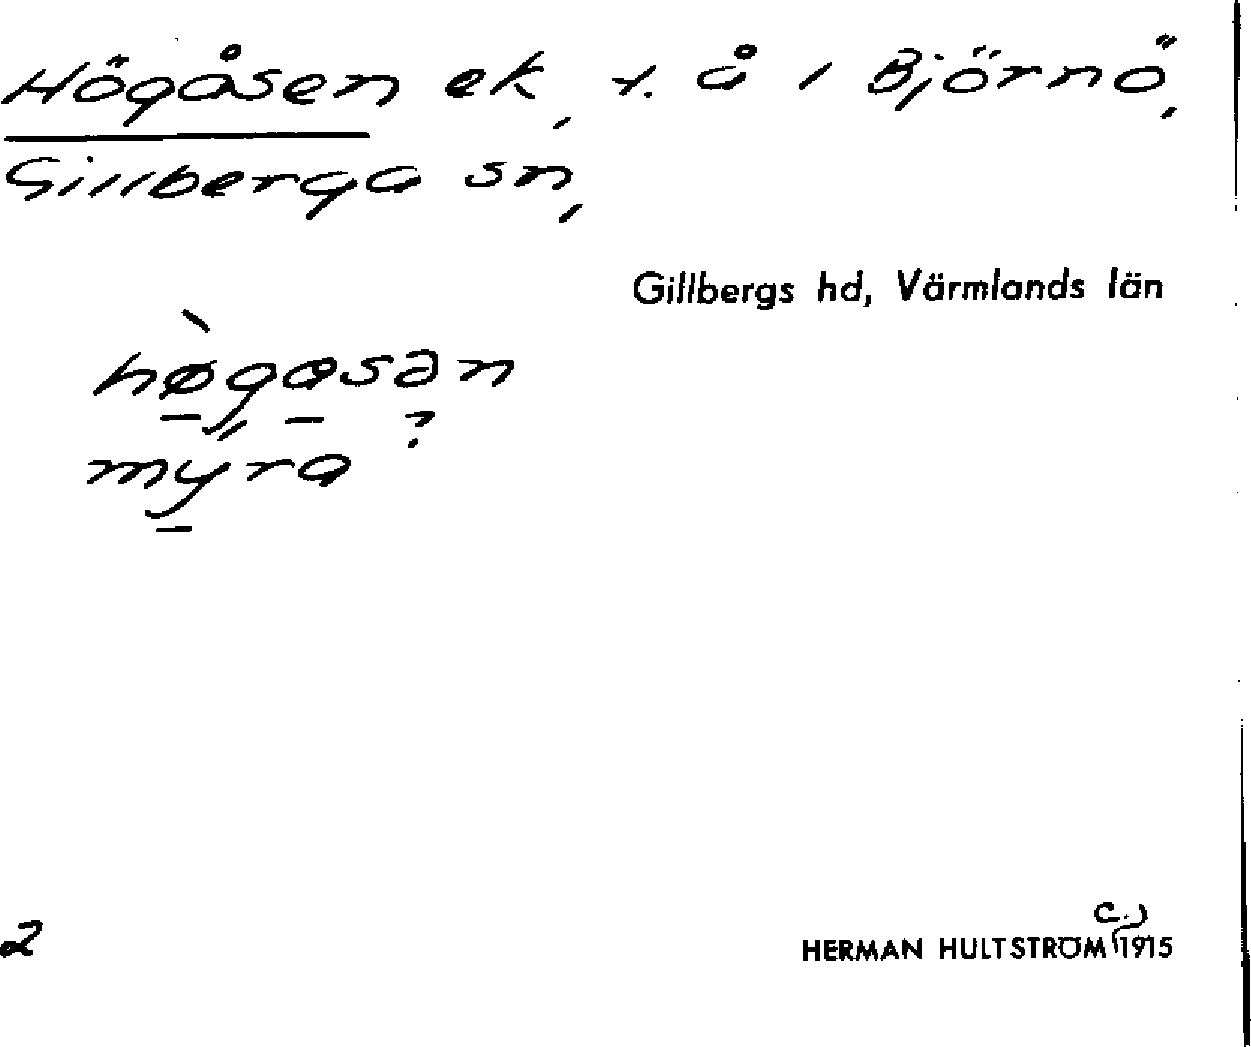 Högåsen ek, t. å i Björnö,
Gillberga sn,
Gillbergs hd, Värmlands län
hø̀gasən
?
myra
c.)
2
HERMAN HULTSTRÖM 1915